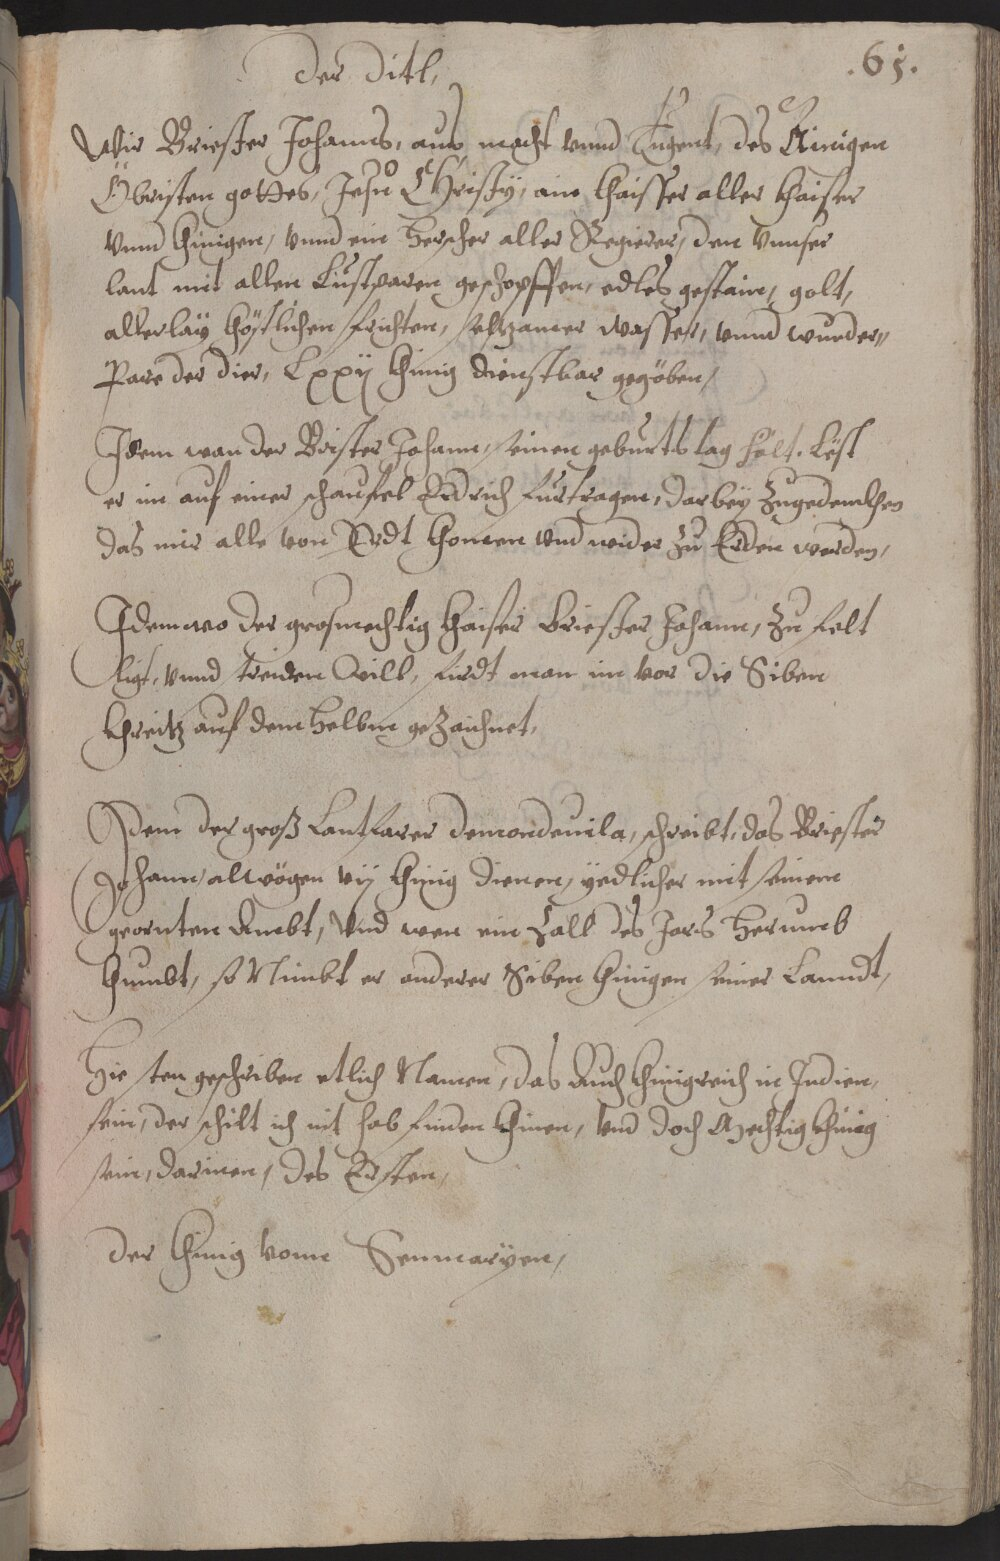 .65.
Der Ditl,
Wir Briester Johanns, aus macht vnnd Tugent, des Ainigen
Öbristen gottes, Jesu Christy, ain khaisser aller khaiser
vnnd khinigen, vnnd ein herscher aller Regierer, den vnnser
lant mit allen Lustparen geschopffen, edles gestain, golt,
allerlaÿ khöstlichen frichten, seltzamer wasser, vnnd wunder„
Pare der dier, Lxxij khinig dienstbar gegöben,
Idem wan der Brister Johann, seinen geburts tag helt. Lest
er im auf einer schaufel Erdrich furtragen, darbeÿ zugedenckhen
das mir alle von Erdt khomen vnd wider zu Erden werden,
Idem wo der grosmechtig khaiser Briester Johann, zu felt
ligt, vnnd streiden will, fierdt man im vor die Siben
khreitz auf dem helbm gezaichnet,
Idem der groß Lantfarer demondeuila, schreibt, das Briester
Johann, alwögen vij khinig dienen, yedlicher mit seinem
geornten Ambt, vnd wen ein Zall des Jars herumb
khumbt, so Nimbt er anderer Siben khinigen seines Lanndt,
Hie sten geschriben etlich Namen, das Auch khinigreich in Indien,
sein, der schilt ich nit hab finden khinen, vnd doch Mechtig khinig
sein, darinen, des Ersten,
Der khinig vonn Senmarÿen,